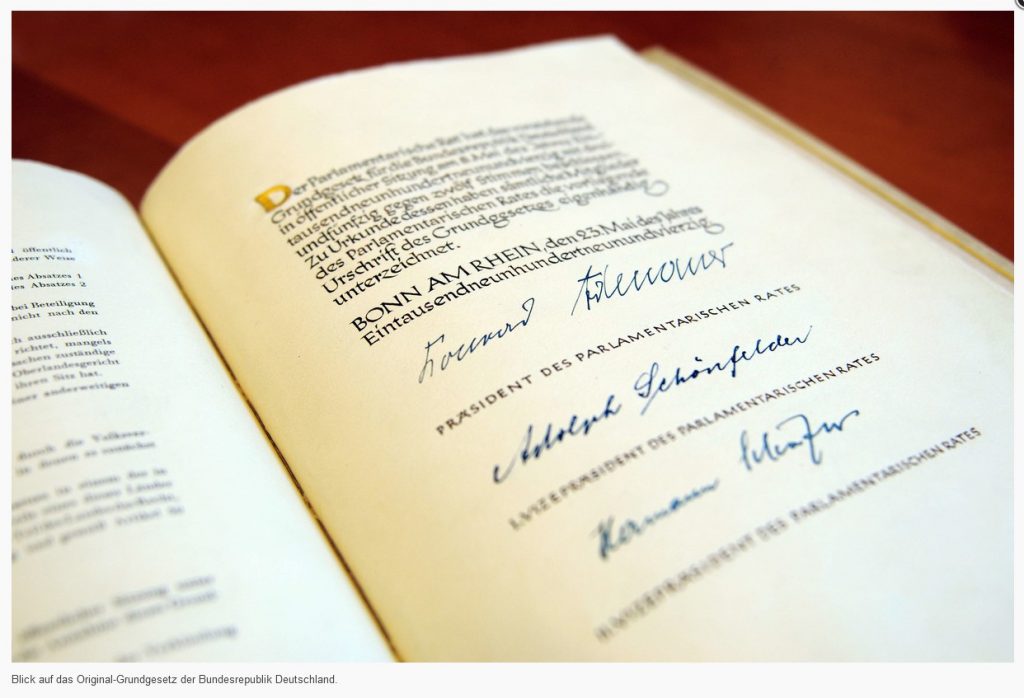 öffentlich
derer Weise
es Absatzes 1
es Absatzes 2
bei Beteiligung
nicht nach den
h ausschließlich
richtet, mangels
schen zuständige
Oberlandesgericht
ihren Sitz hat.
anderweitigen
durch die
in denen es
Der Parlamentarische Rat hat das vorstehende
Grundgesetz für die Bundesrepublik Deutschland
in öffentlicher Sitzung am 8. Mai des Jahres Ein-
tausendneunhundertneunundvierzig mit drei-
undfünfzig gegen zwölf Stimmen beschlossen.
Zu Urkunde dessen haben sämtliche Mitglieder
des Parlamentarischen Rates die vorliegende
Urschrift des Grundgesetzes eigenhändig
unterzeichnet.
BONN AM RHEIN, den 23. Mai des Jahres
Eintausendneunhundertneunundvierzig
Konrad Adenauer
PRÄSIDENT DES PARLAMENTARISCHEN RATES
Adolph Schönfelder
I. VIZEPRÄSIDENT DES PARLAMENTARISCHEN RATES
Hermann Schäfer
II. VIZEPRÄSIDENT DES PARLAMENTARISCHEN RATES
Blick auf das Original-Grundgesetz der Bundesrepublik Deutschland.